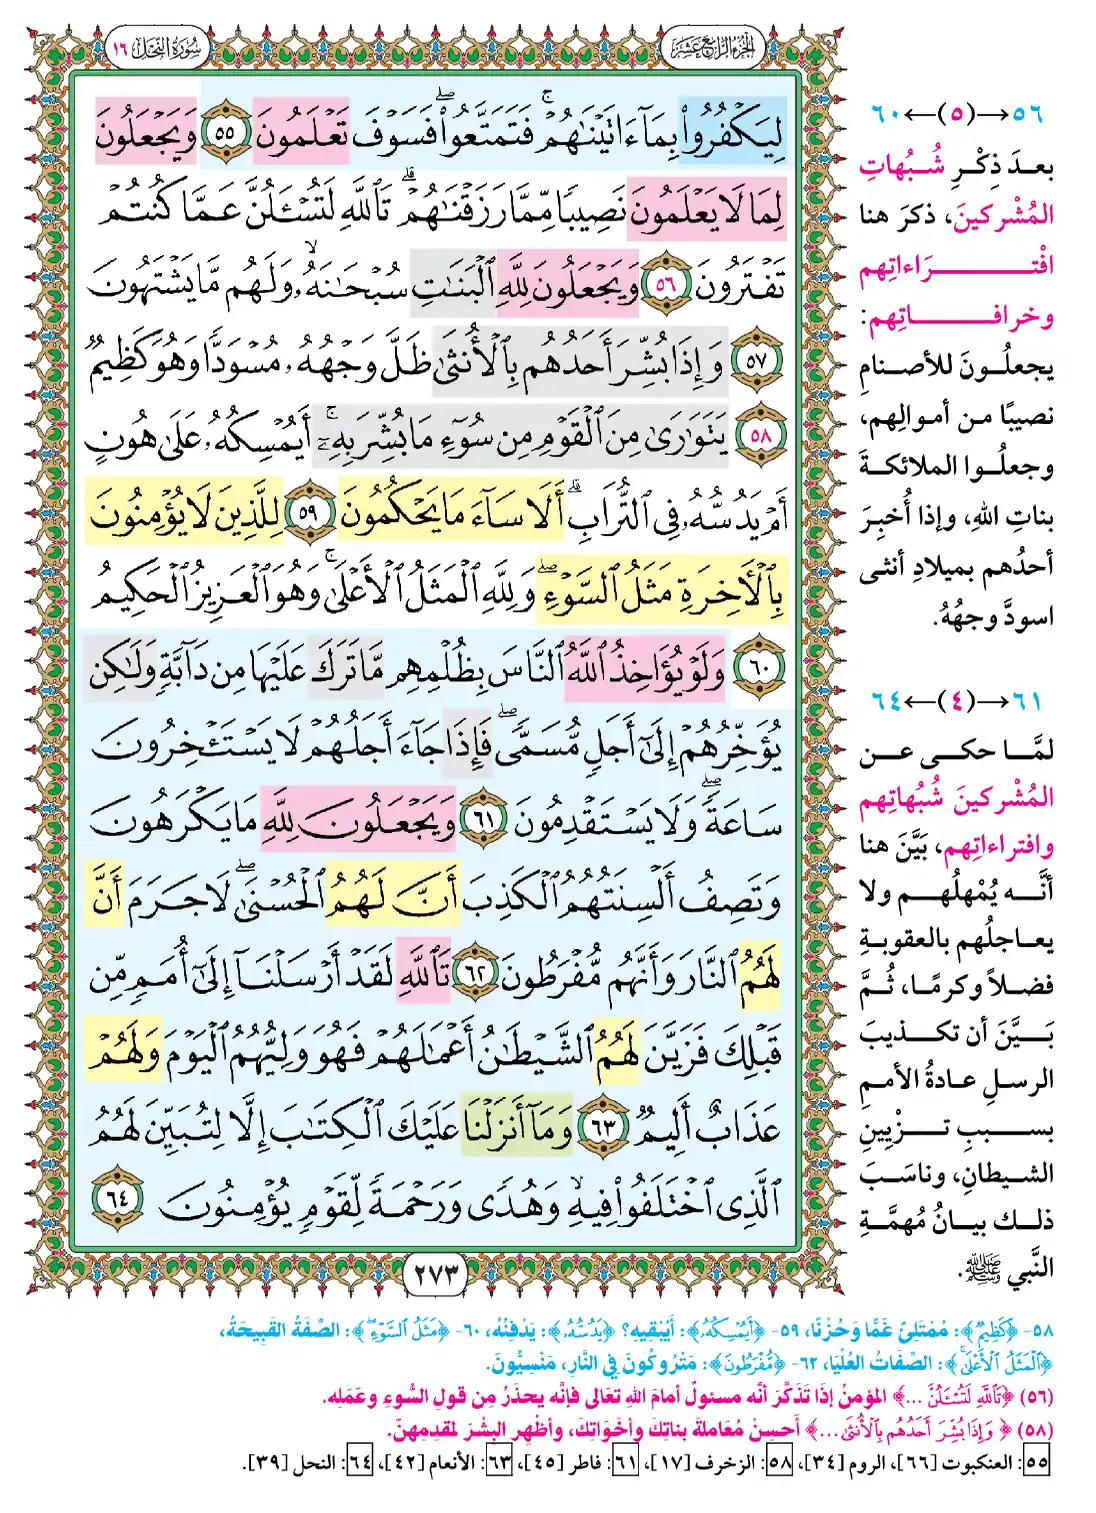 الجزء الرابع عشر
سورة النحل ١٦
لِيَكْفُرُوا۟ بِمَآ ءَاتَيْنَٰهُمْ ۚ فَتَمَتَّعُوا۟ ۖ فَسَوْفَ تَعْلَمُونَ ٥٥ وَيَجْعَلُونَ
لِمَا لَا يَعْلَمُونَ نَصِيبًا مِّمَّا رَزَقْنَٰهُمْ ۗ تَٱللَّهِ لَتُسْـَٔلُنَّ عَمَّا كُنتُمْ
تَفْتَرُونَ ٥٦ وَيَجْعَلُونَ لِلَّهِ ٱلْبَنَٰتِ سُبْحَٰنَهُۥ ۙ وَلَهُم مَّا يَشْتَهُونَ
٥٧ وَإِذَا بُشِّرَ أَحَدُهُم بِٱلْأُنثَىٰ ظَلَّ وَجْهُهُۥ مُسْوَدًّا وَهُوَ كَظِيمٌ
٥٨ يَتَوَٰرَىٰ مِنَ ٱلْقَوْمِ مِن سُوٓءِ مَا بُشِّرَ بِهِۦٓ ۚ أَيُمْسِكُهُۥ عَلَىٰ هُونٍ
أَمْ يَدُسُّهُۥ فِى ٱلتُّرَابِ ۗ أَلَا سَآءَ مَا يَحْكُمُونَ ٥٩ لِلَّذِينَ لَا يُؤْمِنُونَ
بِٱلْأَخِرَةِ مَثَلُ ٱلسَّوْءِ ۖ وَلِلَّهِ ٱلْمَثَلُ ٱلْأَعْلَىٰ ۚ وَهُوَ ٱلْعَزِيزُ ٱلْحَكِيمُ
٦٠ وَلَوْ يُؤَاخِذُ ٱللَّهُ ٱلنَّاسَ بِظُلْمِهِم مَّا تَرَكَ عَلَيْهَا مِن دَآبَّةٍ وَلَٰكِن
يُؤَخِّرُهُمْ إِلَىٰٓ أَجَلٍ مُّسَمًّى ۖ فَإِذَا جَآءَ أَجَلُهُمْ لَا يَسْتَـْٔخِرُونَ
سَاعَةً ۖ وَلَا يَسْتَقْدِمُونَ ٦١ وَيَجْعَلُونَ لِلَّهِ مَا يَكْرَهُونَ
وَتَصِفُ أَلْسِنَتُهُمُ ٱلْكَذِبَ أَنَّ لَهُمُ ٱلْحُسْنَىٰ ۖ لَا جَرَمَ أَنَّ
لَهُمُ ٱلنَّارَ وَأَنَّهُم مُّفْرَطُونَ ٦٢ تَٱللَّهِ لَقَدْ أَرْسَلْنَآ إِلَىٰٓ أُمَمٍ مِّن
قَبْلِكَ فَزَيَّنَ لَهُمُ ٱلشَّيْطَٰنُ أَعْمَٰلَهُمْ فَهُوَ وَلِيُّهُمُ ٱلْيَوْمَ وَلَهُمْ
عَذَابٌ أَلِيمٌ ٦٣ وَمَآ أَنزَلْنَا عَلَيْكَ ٱلْكِتَٰبَ إِلَّا لِتُبَيِّنَ لَهُمُ
ٱلَّذِى ٱخْتَلَفُوا۟ فِيهِ ۙ وَهُدًى وَرَحْمَةً لِّقَوْمٍ يُؤْمِنُونَ ٦٤
٢٧٣
٥٦→(٥)←٦٠
بعدَ ذِكْرِ شُبُهاتِ
المُشْركينَ، ذكرَ هنا
افْتراءاتِهم
وخرافاتِهم:
يجعلُونَ للأصنامِ
نصيبًا من أموالِهم،
وجعلُوا الملائكةَ
بناتِ اللهِ، وإذا أُخبِرَ
أحدُهم بميلادِ أنثى
اسودَّ وجهُهُ.
٦١→(٤)←٦٤
لمَّا حكى عن
المُشركينَ شُبُهاتِهم
وافتراءاتِهم، بَيَّنَ هنا
أنَّه يُمْهلُهم ولا
يعاجلُهم بالعقوبةِ
فضلاً وكرمًا، ثُمَّ
بَيَّنَ أن تكذيبَ
الرسلِ عادةُ الأممِ
بسببِ تزْيينِ
الشيطانِ، وناسَبَ
ذلك بيانُ مُهمَّةِ
النَّبي ﷺ.
٥٨- ﴿كَظِيمٌ﴾: مُمْتَلِئٌ غَمًّا وَحُزْنًا، ٥٩- ﴿أَيُمْسِكُهُۥ﴾: أَيُبْقِيهِ؟ ﴿يَدُسُّهُۥ﴾: يَدْفِنُهُ، ٦٠- ﴿مَثَلُ ٱلسَّوْءِ﴾: الصِّفَةُ القَبِيحَةُ،
﴿ٱلْمَثَلُ ٱلْأَعْلَىٰ﴾: الصِّفَاتُ العُلْيَا، ٦٢- ﴿مُّفْرَطُونَ﴾: مَتْرُوكُونَ فِي النَّارِ، مَنْسِيُّونَ.
(٥٦) ﴿تَٱللَّهِ لَتُسْـَٔلُنَّ ...﴾ المؤمنُ إذَا تَذَكَّرَ أنَّه مسئولٌ أمامَ اللهِ تعَالى فإنَّه يحذَرُ مِن قولِ السُّوءِ وعَمَلِه.
(٥٨) ﴿وَإِذَا بُشِّرَ أَحَدُهُم بِٱلْأُنثَىٰ ...﴾ أَحسِنْ مُعَاملةَ بناتِكَ وأخَوَاتِكَ، وأظْهِر البِشْرَ لمَقدِمِهِنّ.
٥٥: العنكبوت [٦٦]، الروم [٣٤]، ٥٨: الزخرف [١٧]، ٦١: فاطر [٤٥]، ٦٣: الأنعام [٤٢]، ٦٤: النحل [٣٩].